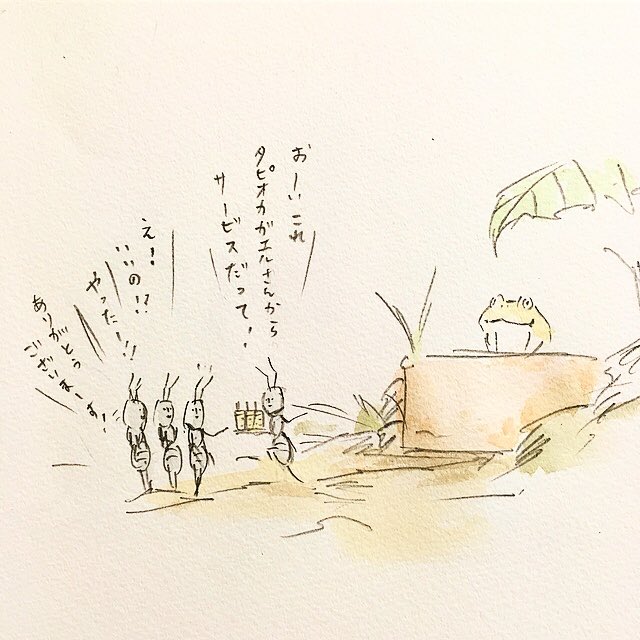 おーいこれ
タピオカガエルさんから
サービスだって！
え！
いいの！？
やったー！！
ありがとう
ございまーす！